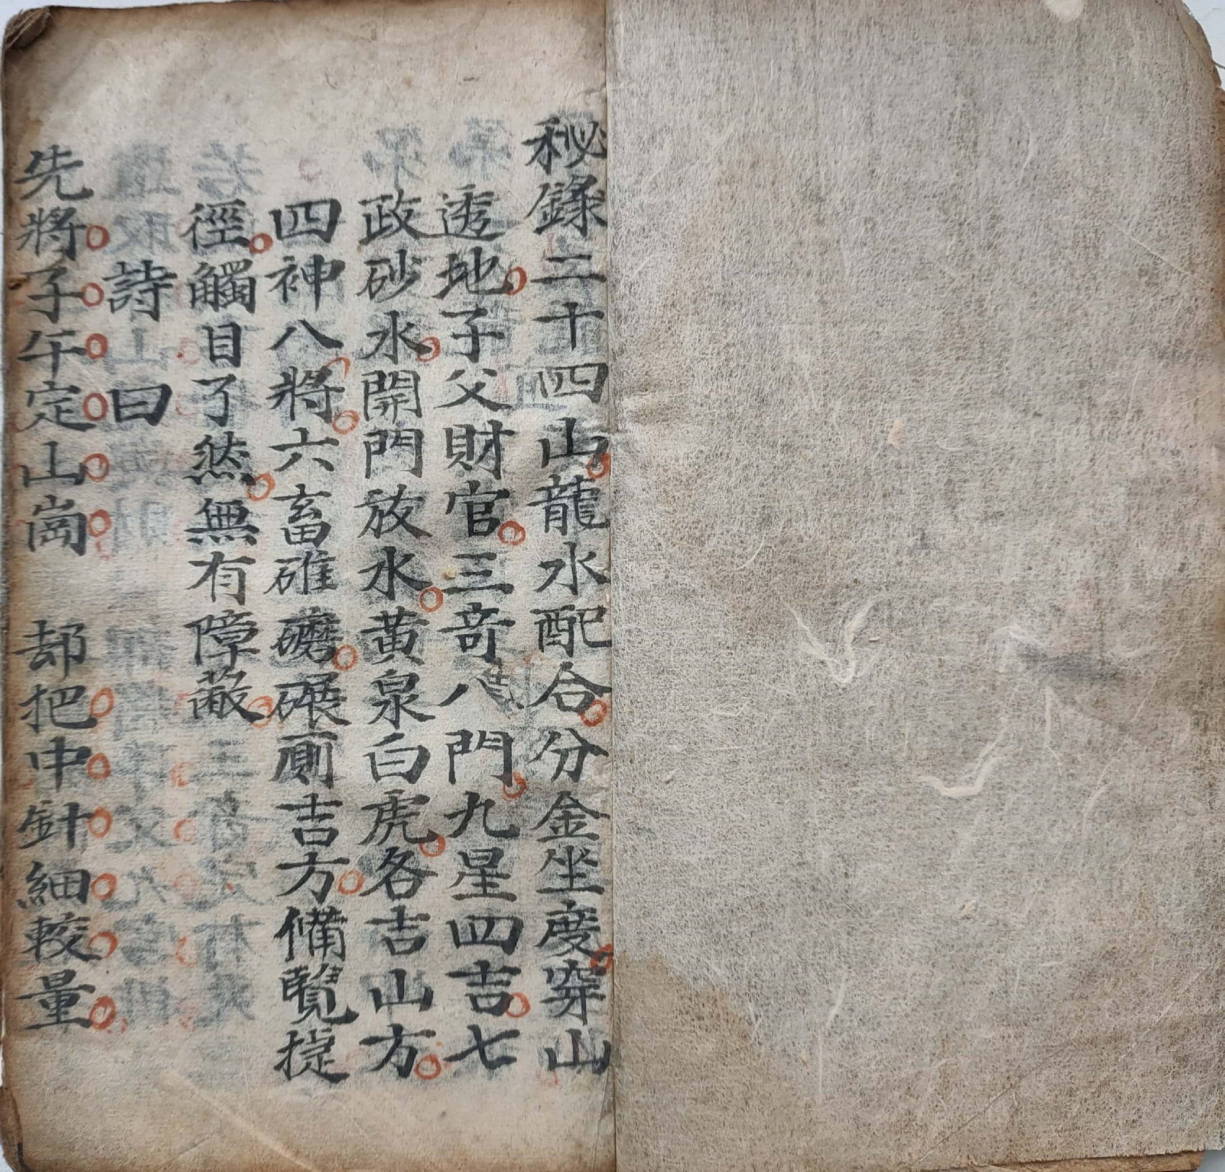 秘錄二十四山龍水配合分金坐度穿山
透地子父財官三竒八門九星四吉七
政砂水開門放水黃泉白虎各吉山方
四神八將六畜碓磨碾廁吉方備覽捷
徑觸目了然無有障蔽
詩曰
先將子午定山崗 却把中針細較量